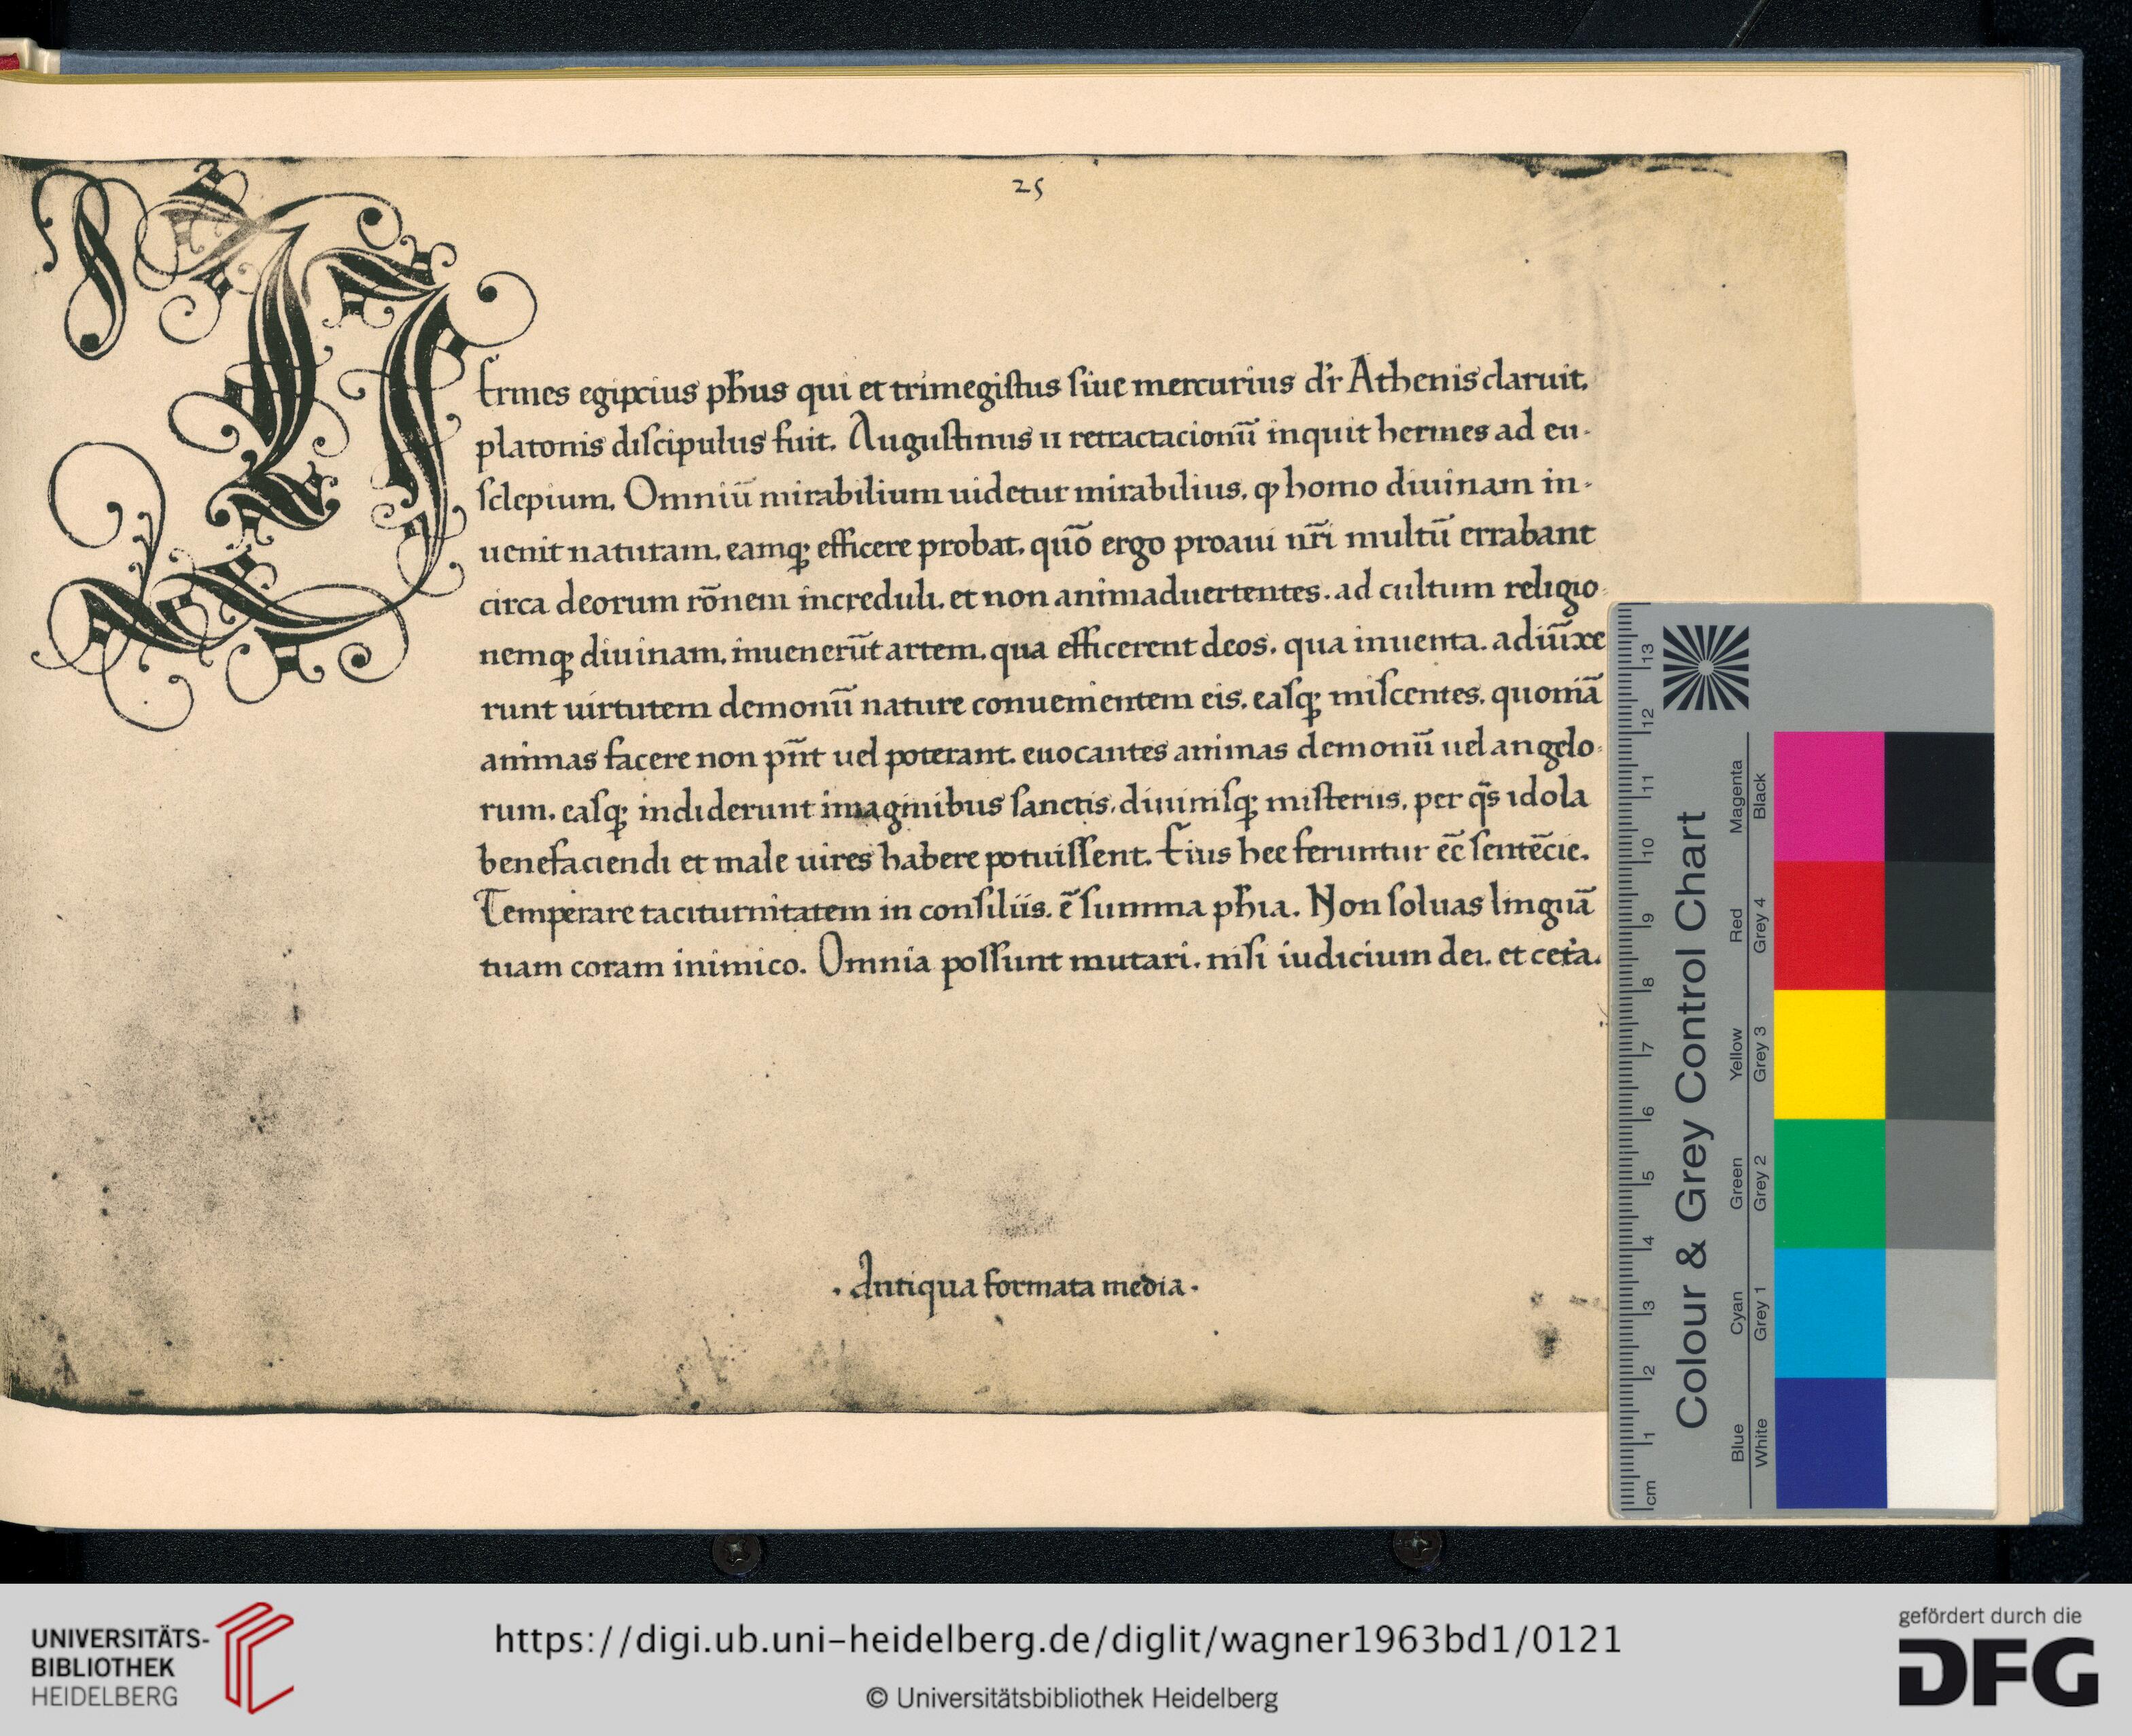 25
Hermes egipcius ph̅us qui et trimegiſtus ſiue mercurius dr̅ Athenis claruit.
platonis diſcipulus fuit. Auguſtinus ii retractacionū inquit hermes ad eu-
ſclepium. Omniū mirabilium uidetur mirabilius. ꝙ homo diuinam in-
uenit naturam. eamqꝫ efficere probat. quō ergo proaui nr̅i multū errabant
circa deorum rōnem increduli. et non animaduertentes. ad cultum religio-
nemqꝫ diuinam. inuenerūt artem. qua efficerent deos. qua inuenta. adiūxe
runt uirtutem demonū nature conuenientem eis. eaſqꝫ miſcentes. quoniā
animas facere non pn̅t uel poterant. euocantes animas demonū uel angelo-
rum. eaſqꝫ indiderunt imaginibus ſanctis. diuiniſqꝫ miſteriis. per q̄s idola
benefaciendi et male uires habere potuiſſent. Eius hee feruntur ec̅ ſentēcie.
Temperare taciturnitatem in conſiliis. ē ſumma ph̅ia. Non ſoluas linguā
tuam coram inimico. Omnia poſſunt mutari. niſi iudicium dei. et cet̓a.
. Antiqua formata media .
Colour & Grey Control Chart
Blue Cyan Green Yellow Red Magenta
White Grey 1 Grey 2 Grey 3 Grey 4 Black
cm 1 2 3 4 5 6 7 8 9 10 11 12 13
UNIVERSITÄTS-
BIBLIOTHEK
HEIDELBERG
https://digi.ub.uni-heidelberg.de/diglit/wagner1963bd1/0121
© Universitätsbibliothek Heidelberg
gefördert durch die
DFG